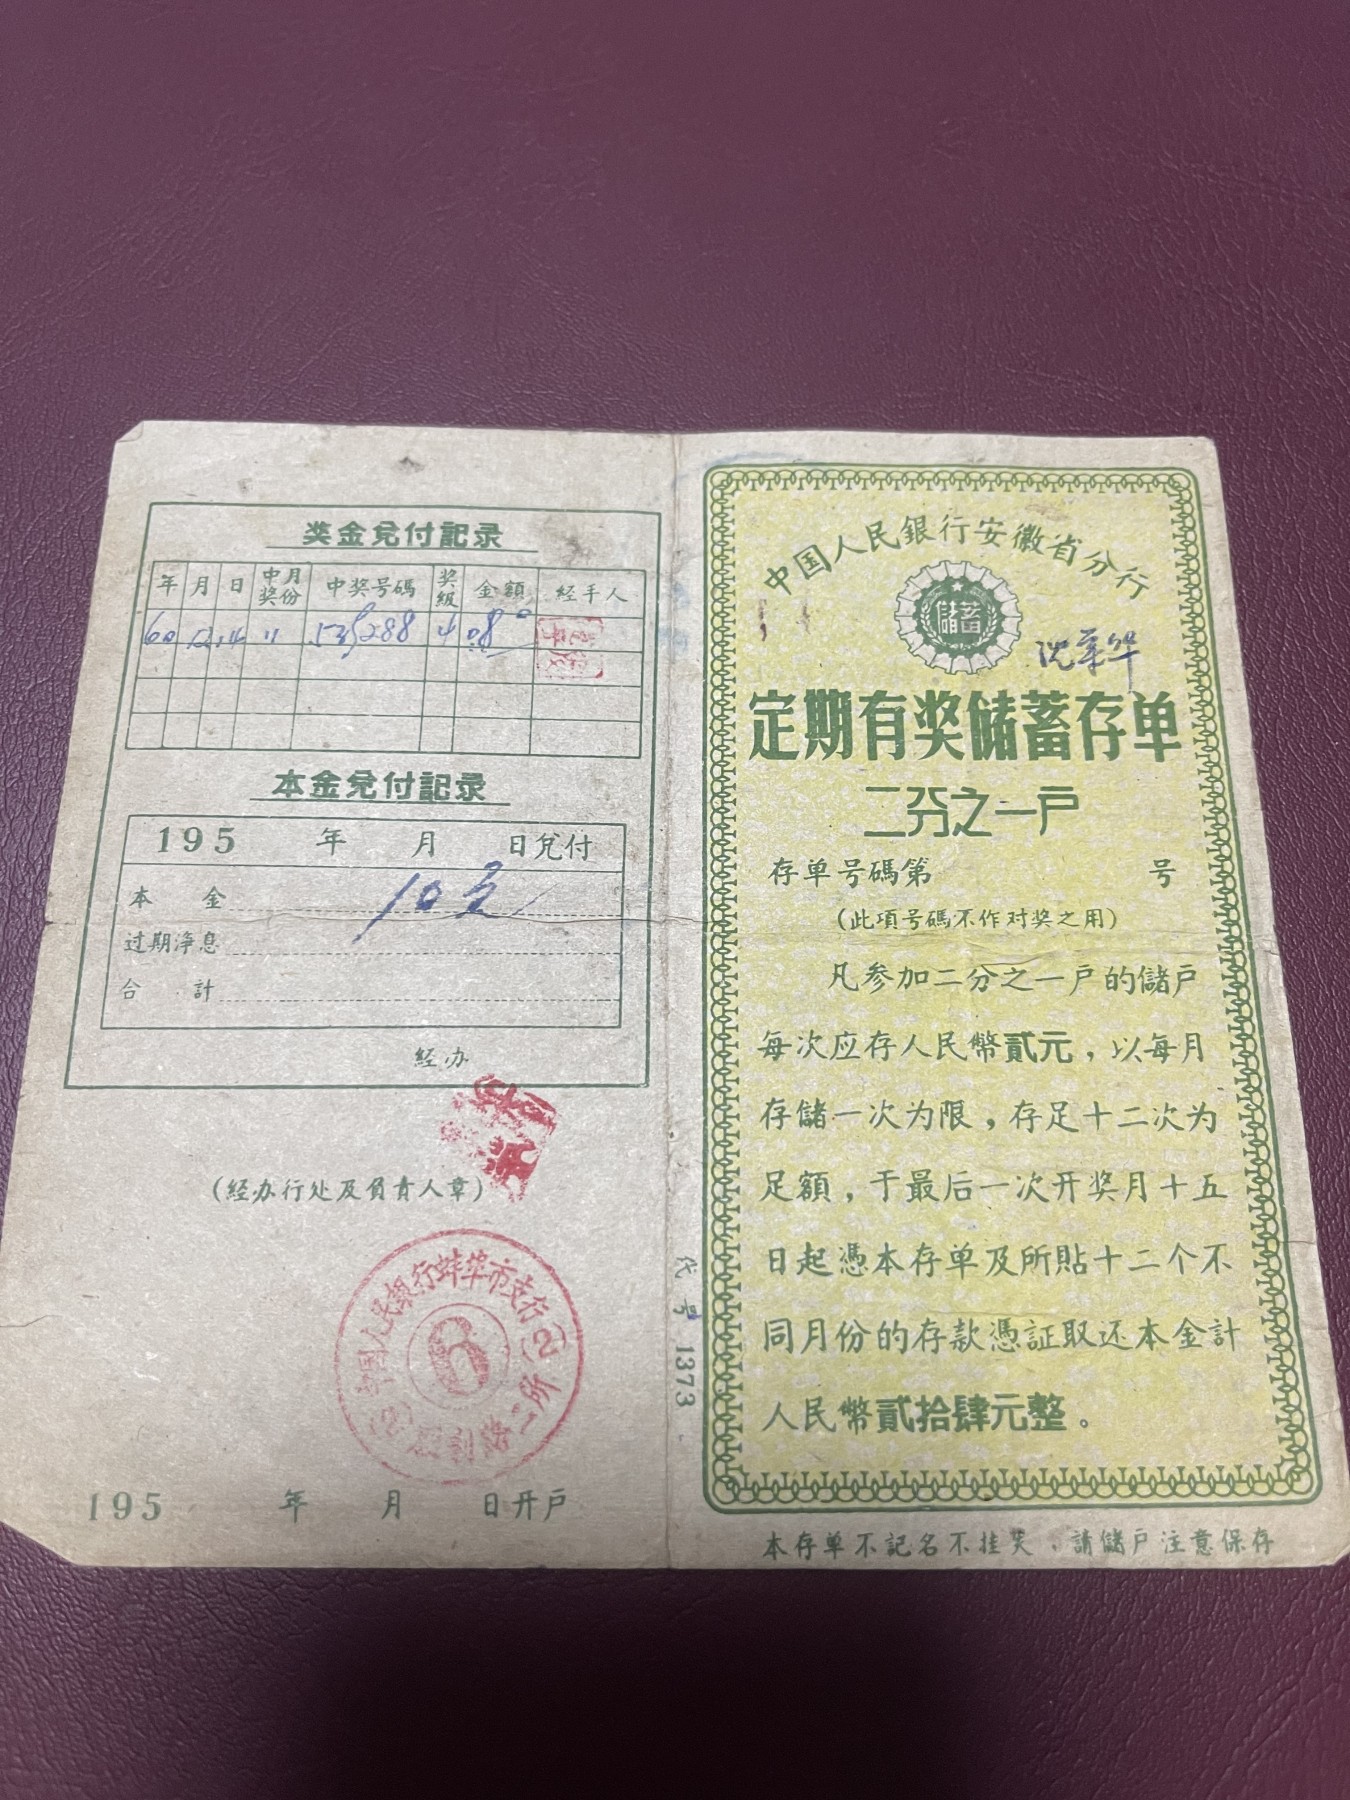 奖金兑付記录
年 月 日 中奖月份 中奖号碼 奖級 金額 经手人
60 12 14 11 4
本金兑付記录
195 年 月 日兑付
本 金 10元
过期净息
合 計
经办
(经办行处及負責人章)
中国人民銀行蚌埠市支行
6
195 年 月 日开戶
代号 1373
中国人民銀行安徽省分行
儲蓄
定期有奖儲蓄存单
二分之一戶
存单号碼第 号
(此項号碼不作对奖之用)
凡参加二分之一戶的儲戶
每次应存人民幣貳元，以每月
存儲一次为限，存足十二次为
足額，于最后一次开奖月十五
日起憑本存单及所貼十二个不
同月份的存款憑証取还本金計
人民幣貳拾肆元整。
本存单不記名不挂失，請儲戶注意保存